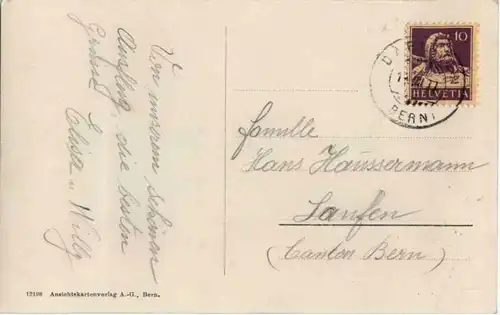 Von unserem schönen
Ausflug, die besten
Grüsse
Elisa u. Willy
10
HELVETIA
(BERN)
Familie
Hans Häussermann
Laufen
(Canton Bern)
12198 Ansichtskartenverlag A.-G., Bern.